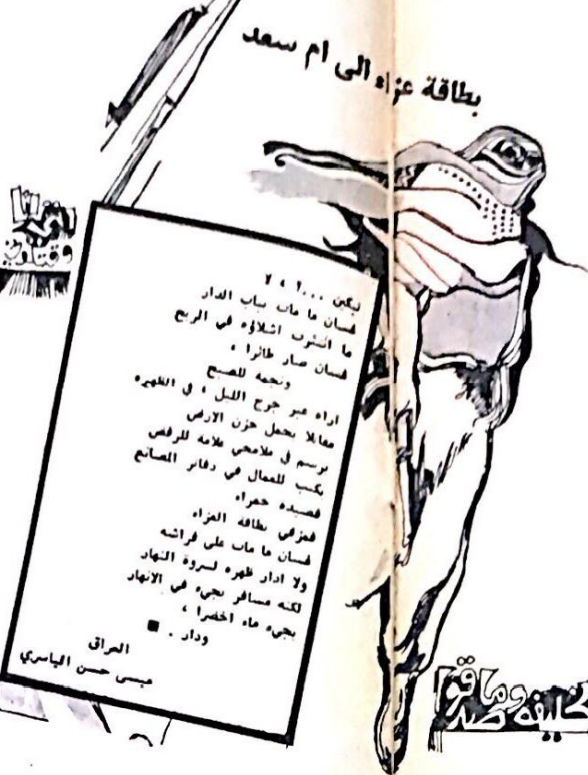 بطاقة عزاء الى ام سعد
تبكين ... ؟ ، لا
غسان ما مات بباب الدار
ما انتثرت اشلاؤه في الريح
غسان صار طائرا ،
ونجمة للصبح
اراه عبر جرح الليل ، في الظهيره
مقاتلا يحمل حزن الارض
يرسم في ملامحي علامه للرفض
يكتب للعمال في دفاتر المصانع
قصيده حمراء
فمزقي بطاقة العزاء
غسان ما مات على فراشه
ولا ادار ظهره لسروة النهار
لكنه مسافر يجيء في الانهار
يجيء ماء اخضرا ،
ودار . ■
العراق
عيسى حسن الياسري